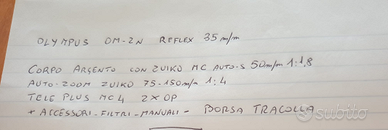 OLYMPUS OM-2N REFLEX 35 m/m
CORPO ARGENTO CON ZUIKO MC AUTO-S 50m/m 1:1,8
AUTO-ZOOM ZUIKO 75-150m/m 1:4
TELE PLUS MC4 2X OP
+ ACCESSORI - FILTRI - MANUALI - BORSA TRACOLLA
Subito